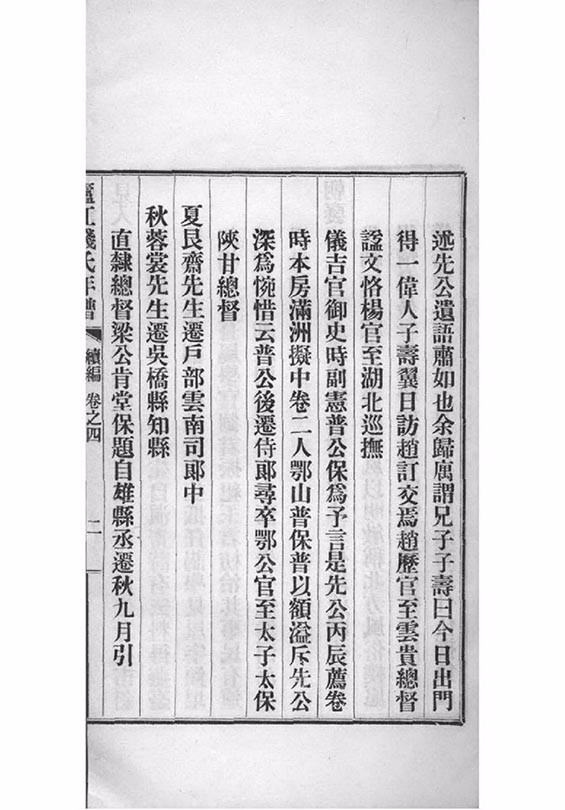 述先公遺語肅如也余歸寓謂兄子子壽曰今日出門
得一偉人子壽翼日訪趙訂交焉趙歷官至雲貴總督
諡文恪楊官至湖北巡撫
儀吉官御史時副憲普公保爲予言是先公丙辰薦卷
時本房滿洲擬中卷二人鄂山普保普以額溢斥先公
深爲惋惜云普公後遷侍郎尋卒鄂公官至太子太保
陝甘總督
夏艮齋先生遷戶部雲南司郎中
秋蓉裳先生遷吳橋縣知縣
直隸總督梁公肯堂保題自雄縣丞遷秋九月引
廬江錢氏年譜 續編 卷之四 二